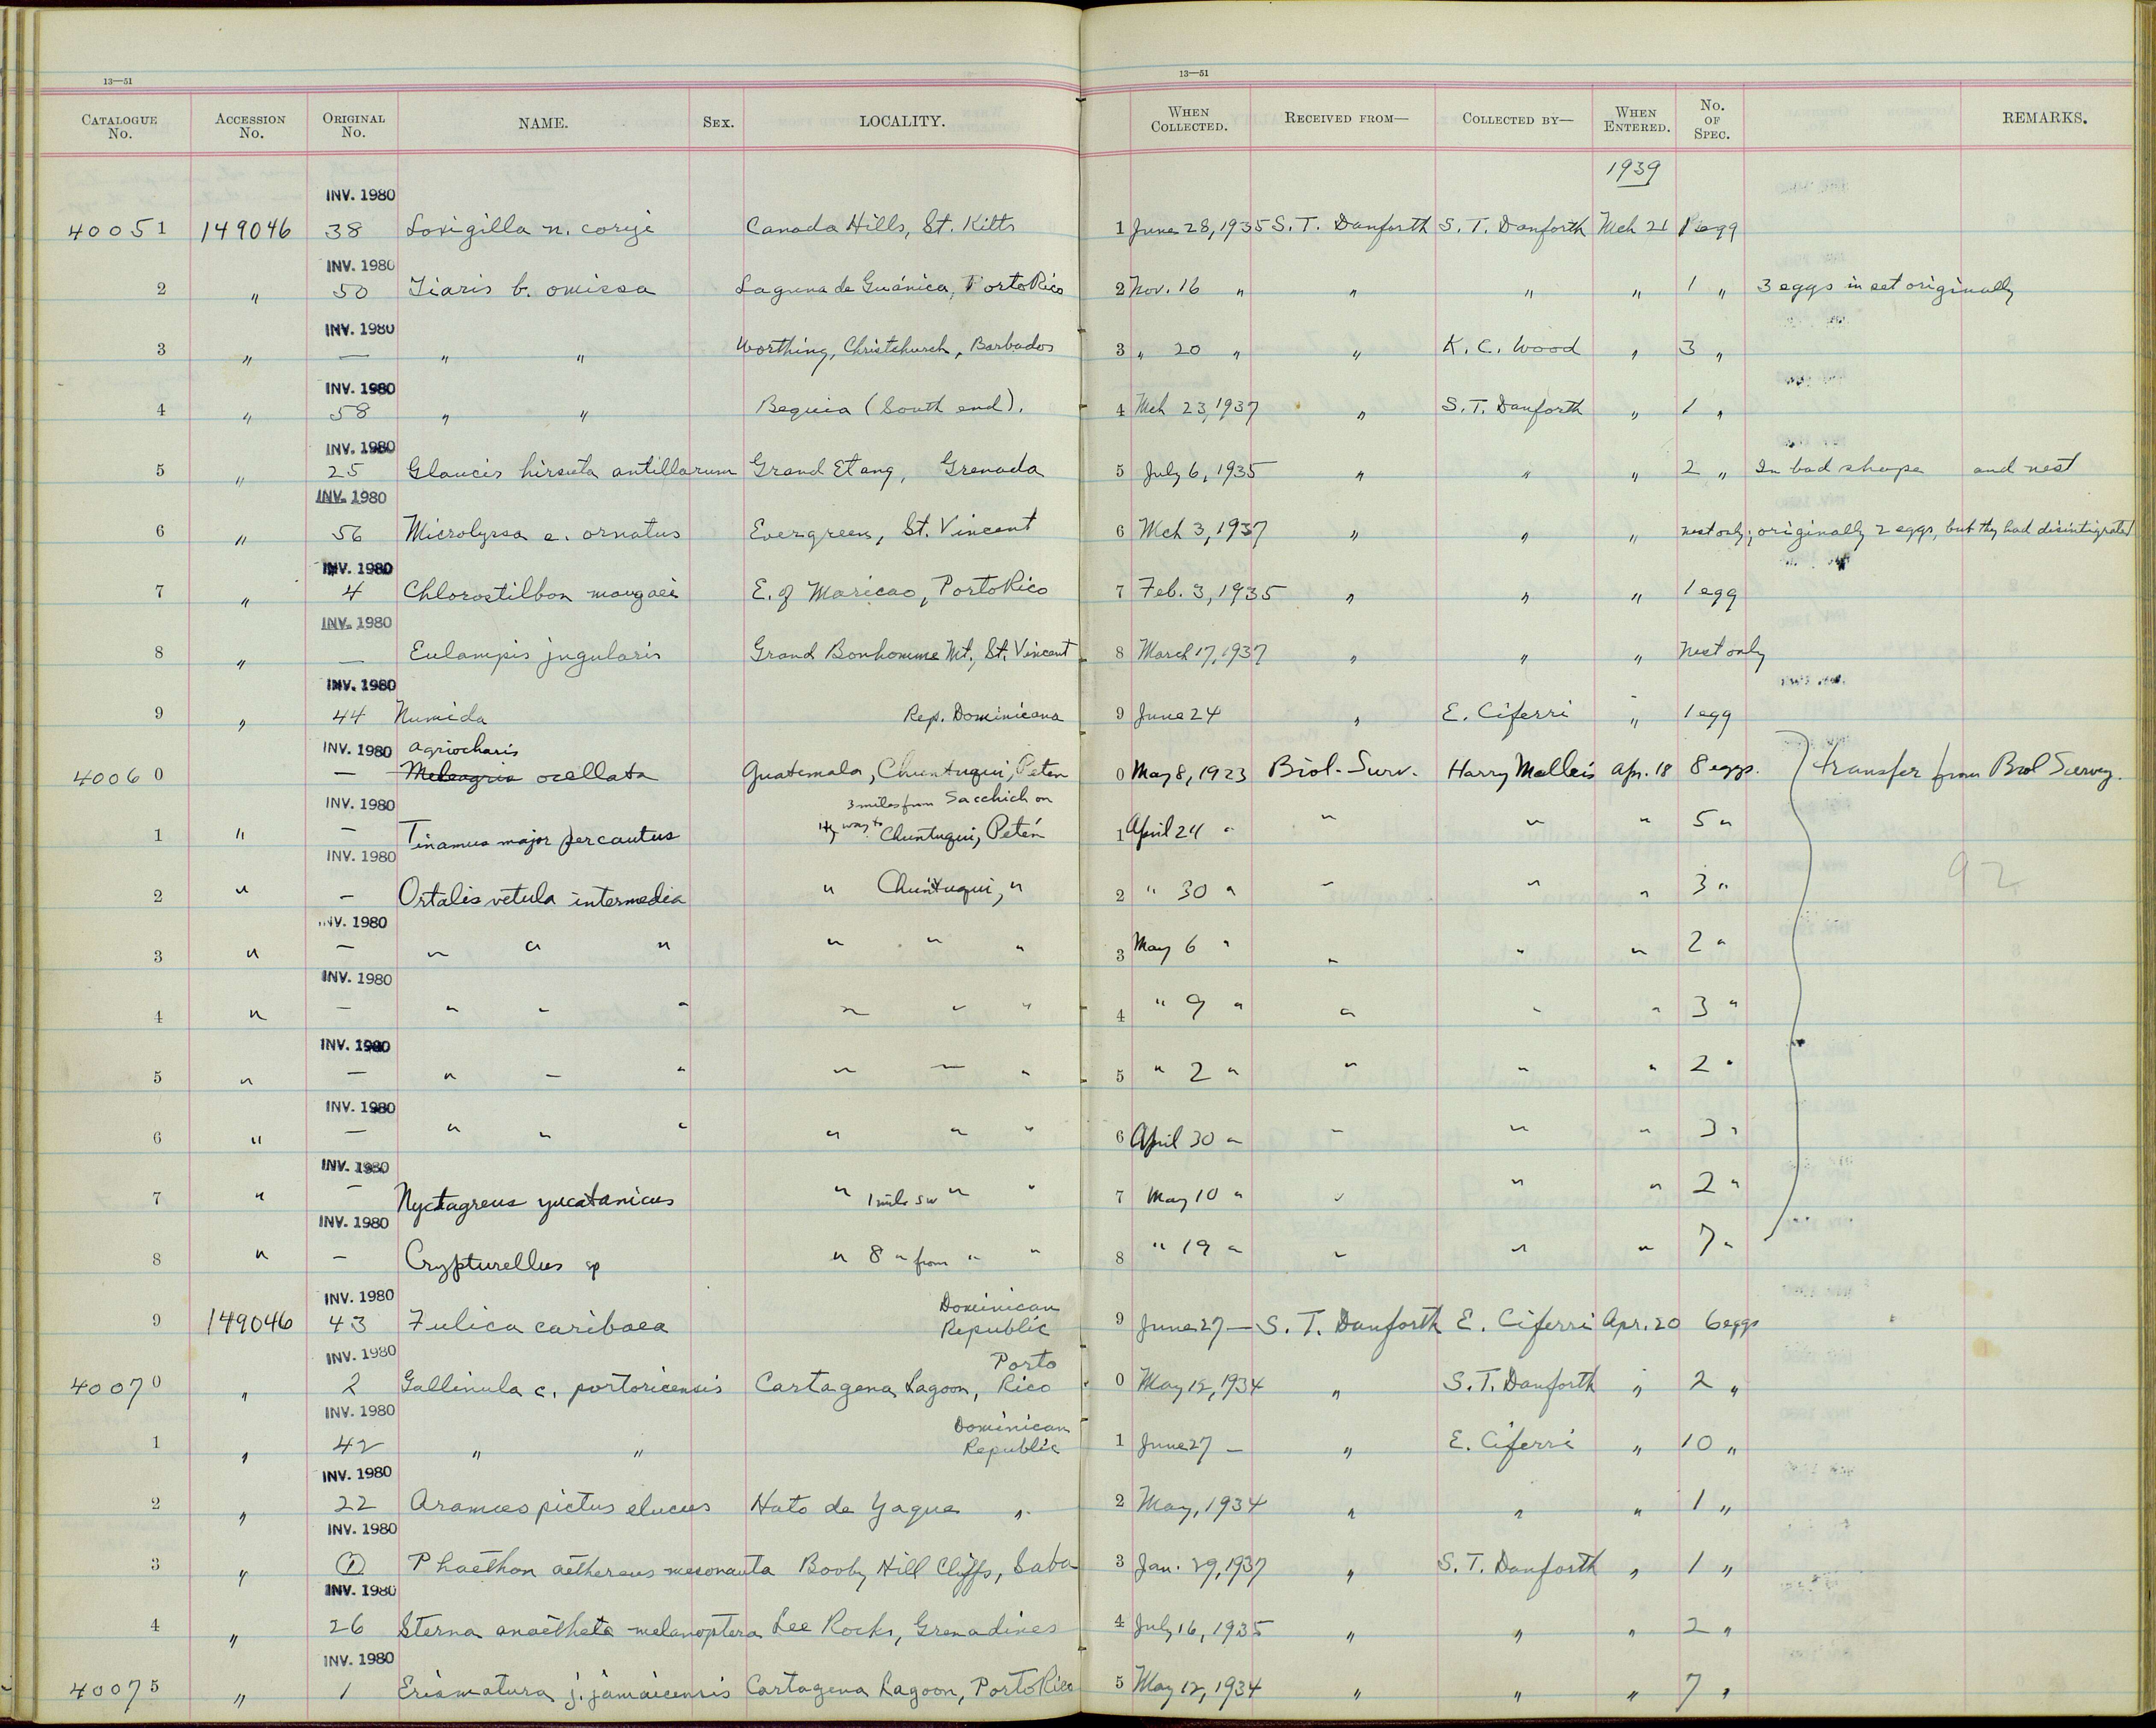 13—51
13—51
CATALOGUE No. ACCESSION No. ORIGINAL No. NAME. SEX. LOCALITY. WHEN COLLECTED. RECEIVED FROM— COLLECTED BY— WHEN ENTERED. No. OF SPEC. REMARKS.
1939
INV. 1980
40051 149046 38 Loxigilla n. coryi Canada Hills, St. Kitts 1 June 28, 1935 S. T. Danforth S. T. Danforth Mch 21 1 egg
INV. 1980
2 " 50 Tiaris b. omissa Laguna de Guánica, Porto Rico 2 Nov. 16 " " " " 1 " 3 eggs in set originally
INV. 1980
3 " — " " Worthing, Christchurch, Barbados 3 " 20 " " K. C. Wood " 3 "
INV. 1980
4 " 58 " " Bequia (South end). 4 Mch 23, 1937 " S. T. Danforth " 1 "
INV. 1980
5 " 25 Glaucis hirsuta antillarum Grand Etang, Grenada 5 July 6, 1935 " " " 2 " In bad shape and nest
INV. 1980
6 " 56 Microlyssa e. ornatus Evergreen, St. Vincent 6 Mch 3, 1937 " " " nest only; originally 2 eggs, but they had disintigrated
INV. 1980
7 " 4 Chlorostilbon maugaei E. of Maricao, Porto Rico 7 Feb. 3, 1935 " " " 1 egg
INV. 1980
8 " — Eulampis jugularis Grand Bonhomme Mt., St. Vincent 8 March 17, 1937 " " " Nest only
INV. 1980
9 " 44 Numida Rep. Dominicana 9 June 24 " E. Ciferri " 1 egg
INV. 1980 Agriocharis
40060 — Meleagris ocellata Guatemala, Chuntuqui, Peten 0 May 8, 1923 Biol. Surv. Harry Malleis Apr. 18 8 eggs. transfer from Biol Survey.
INV. 1980 3 miles from Sacchich on
1 " — Tinamus major percautus the way to Chuntuqui, Petén 1 April 24 " " " " 5 "
INV. 1980
2 " — Ortalis vetula intermedia " Chuntuqui, " 2 " 30 " " " " 3 " 92
INV. 1980
3 " — " " " " " " 3 May 6 " " " " 2 "
INV. 1980
4 " — " " " " " " 4 " 9 " " " " 3 "
INV. 1980
5 " — " " " " " " 5 " 2 " " " " 2 "
INV. 1980
6 " — " " " " " " 6 April 30 " " " " 3 "
INV. 1980
7 " — Nyctagreus yucatanicus " 1 mile SW " " 7 May 10 " " " " 2 "
INV. 1980
8 " — Crypturellus sp " 8 " from " " 8 " 19 " " " " 7 "
INV. 1980 Dominican
9 149046 43 Fulica caribaea Republic 9 June 27 — S. T. Danforth E. Ciferri Apr. 20 6 eggs
INV. 1980 Porto
40070 " 2 Gallinula c. portoricensis Cartagena Lagoon, Rico 0 May 12, 1934 " S. T. Danforth " 2 "
INV. 1980 Dominican
1 " 42 " " Republic 1 June 27 — " E. Ciferri " 10 "
INV. 1980
2 " 22 Aramus pictus elucus Hato de Yaque " 2 May, 1934 " " " 1 "
INV. 1980
3 " 1 Phaëthon aethereus mesonauta Booby Hill Cliffs, Saba 3 Jan. 29, 1937 " S. T. Danforth " 1 "
INV. 1980
4 " 26 Sterna anaëtheta melanoptera Lee Rocks, Grenadines 4 July 16, 1935 " " " 2 "
INV. 1980
40075 " 1 Erismatura j. jamaicensis Cartagena Lagoon, Porto Rico 5 May 12, 1934 " " " 7 "